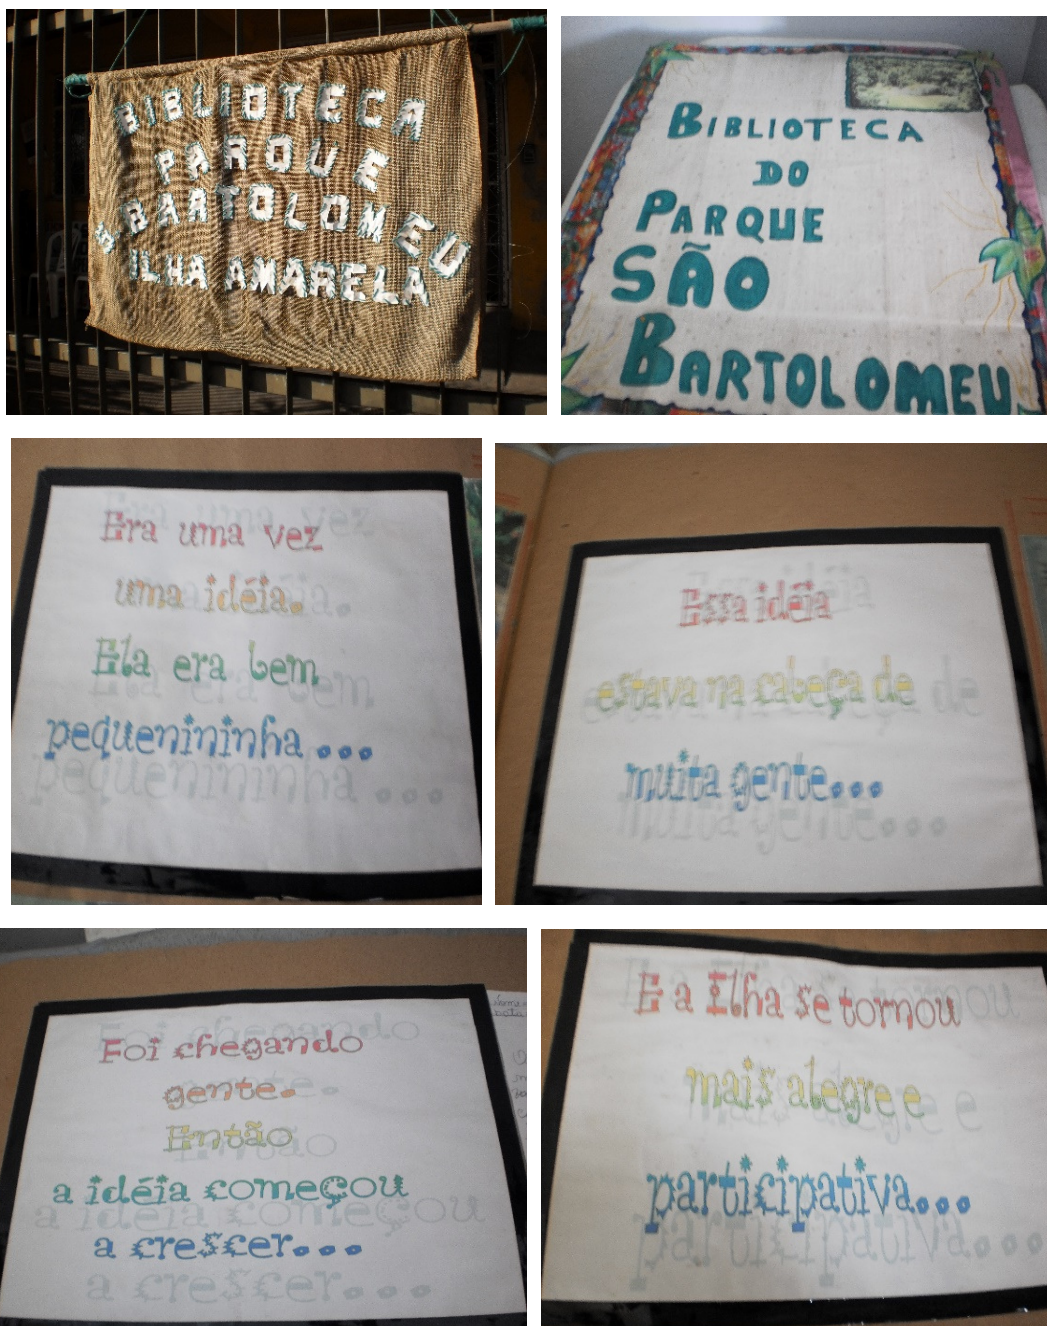 BIBLIOTECA
PARQUE
S. BARTOLOMEU
ILHA AMARELA
BIBLIOTECA
DO
PARQUE
SÃO
BARTOLOMEU
Era uma vez
uma idéia.
Ela era bem
pequenininha ...
Essa idéia
estava na cabeça de
muita gente...
Foi chegando
gente.
Então
a idéia começou
a crescer...
E a Ilha se tornou
mais alegre e
participativa...